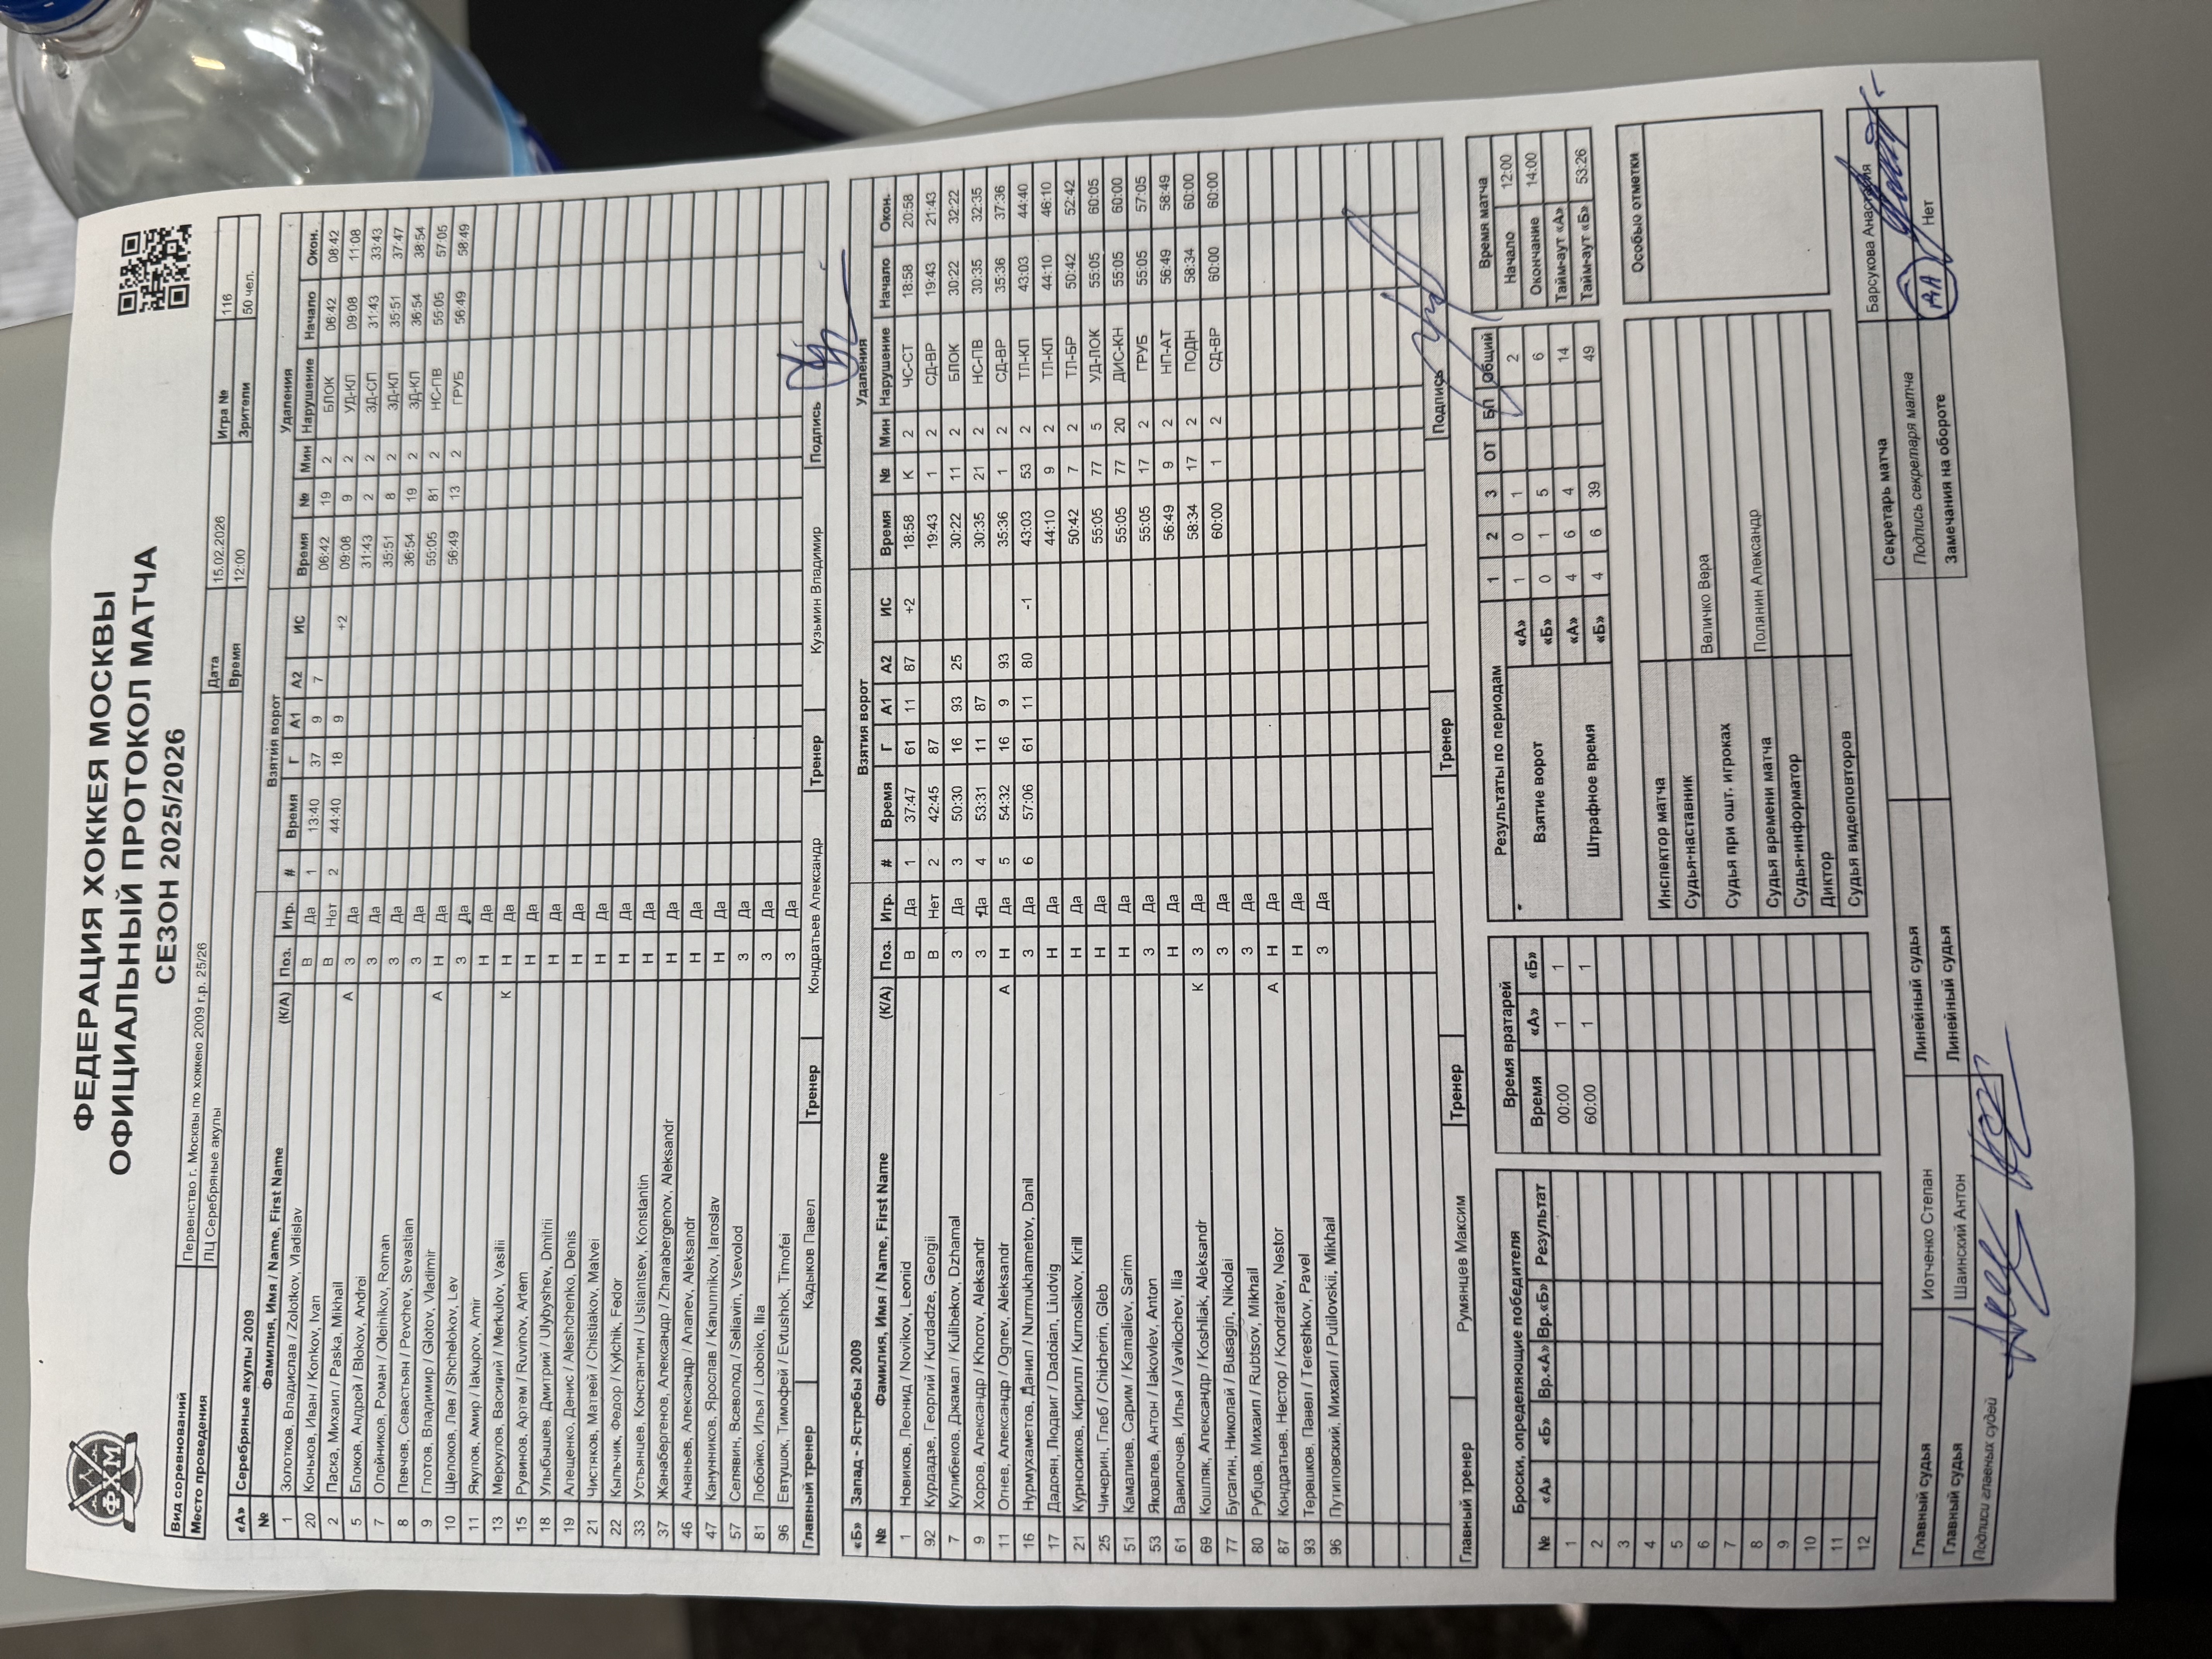 ФЕДЕРАЦИЯ ХОККЕЯ МОСКВЫ
ОФИЦИАЛЬНЫЙ ПРОТОКОЛ МАТЧА
СЕЗОН 2025/2026
ФХМ
Вид соревнований Первенство г. Москвы по хоккею 2009 г.р. 25/26 Дата 15.02.2026 Игра № 116
Место проведения ЛЦ Серебряные акулы Время 12:00 Зрители 50 чел.
«А» Серебряные акулы 2009 Взятия ворот Удаления
№ Фамилия, Имя / Name, First Name (К/А) Поз. Игр. # Время Г А1 А2 ИС Время № Мин Нарушение Начало Окон.
1 Золотков, Владислав / Zolotkov, Vladislav В Да 1 13:40 37 9 7 06:42 19 2 БЛОК 06:42 08:42
20 Коньков, Иван / Konkov, Ivan В Нет 2 44:40 18 9 +2 09:08 9 2 УД-КЛ 09:08 11:08
2 Паска, Михаил / Paska, Mikhail А З Да 31:43 2 2 ЗД-СП 31:43 33:43
5 Блоков, Андрей / Blokov, Andrei З Да 35:51 8 2 ЗД-КЛ 35:51 37:47
7 Олейников, Роман / Oleinikov, Roman З Да 36:54 19 2 ЗД-КЛ 36:54 38:54
8 Певчев, Севастьян / Pevchev, Sevastian З Да 55:05 81 2 НС-ПВ 55:05 57:05
9 Глотов, Владимир / Glotov, Vladimir А Н Да 56:49 13 2 ГРУБ 56:49 58:49
10 Щелоков, Лев / Shchelokov, Lev З Да
11 Якупов, Амир / Iakupov, Amir Н Да
13 Меркулов, Василий / Merkulov, Vasilii К Н Да
15 Рувинов, Артем / Ruvinov, Artem Н Да
18 Улыбышев, Дмитрий / Ulybyshev, Dmitrii Н Да
19 Алещенко, Денис / Aleshchenko, Denis Н Да
21 Чистяков, Матвей / Chistiakov, Matvei Н Да
22 Кыльчик, Федор / Kylchik, Fedor Н Да
33 Устьянцев, Константин / Ustiantsev, Konstantin Н Да
37 Жанабергенов, Александр / Zhanabergenov, Aleksandr Н Да
46 Ананьев, Александр / Ananev, Aleksandr Н Да
47 Канунников, Ярослав / Kanunnikov, Iaroslav Н Да
57 Селявин, Всеволод / Seliavin, Vsevolod З Да
81 Лобойко, Илья / Loboiko, Ilia З Да
96 Евтушок, Тимофей / Evtushok, Timofei З Да
Главный тренер Кадыков Павел Тренер Кондратьев Александр Тренер Кузьмин Владимир Подпись
«Б» Запад - Ястребы 2009 Взятия ворот Удаления
№ Фамилия, Имя / Name, First Name (К/А) Поз. Игр. # Время Г А1 А2 ИС Время № Мин Нарушение Начало Окон.
1 Новиков, Леонид / Novikov, Leonid В Да 1 37:47 61 11 87 +2 18:58 К 2 ЧС-СТ 18:58 20:58
92 Курдадзе, Георгий / Kurdadze, Georgii В Нет 2 42:45 87 19:43 1 2 СД-ВР 19:43 21:43
7 Кулибеков, Джамал / Kulibekov, Dzhamal З Да 3 50:30 16 93 25 30:22 11 2 БЛОК 30:22 32:22
9 Хоров, Александр / Khorov, Aleksandr З Да 4 53:31 11 87 30:35 21 2 НС-ПВ 30:35 32:35
11 Огнев, Александр / Ognev, Aleksandr А Н Да 5 54:32 16 9 93 35:36 1 2 СД-ВР 35:36 37:36
16 Нурмухаметов, Данил / Nurmukhametov, Danil З Да 6 57:06 61 11 80 -1 43:03 53 2 ТЛ-КЛ 43:03 44:40
17 Дадоян, Людвиг / Dadoian, Liudvig Н Да 44:10 9 2 ТЛ-КЛ 44:10 46:10
21 Курносиков, Кирилл / Kurnosikov, Kirill Н Да 50:42 7 2 ТЛ-БР 50:42 52:42
25 Чичерин, Глеб / Chicherin, Gleb Н Да 55:05 77 5 УД-ЛОК 55:05 60:05
51 Камалиев, Сарим / Kamaliev, Sarim Н Да 55:05 77 20 ДИС-КН 55:05 60:00
53 Яковлев, Антон / Iakovlev, Anton З Да 55:05 17 2 ГРУБ 55:05 57:05
61 Вавилочев, Илья / Vavilochev, Ilia Н Да 56:49 9 2 НП-АТ 56:49 58:49
69 Кошляк, Александр / Koshliak, Aleksandr К З Да 58:34 17 2 ПОДН 58:34 60:00
77 Бусагин, Николай / Busagin, Nikolai З Да 60:00 1 2 СД-ВР 60:00 60:00
80 Рубцов, Михаил / Rubtsov, Mikhail З Да
87 Кондратьев, Нестор / Kondratev, Nestor А Н Да
93 Терешков, Павел / Tereshkov, Pavel Н Да
96 Путиловский, Михаил / Putilovskii, Mikhail З Да
Главный тренер Румянцев Максим Тренер Тренер Подпись
Броски, определяющие победителя
№ «А» «Б» Вр.«А» Вр.«Б» Результат
1
2
3
4
5
6
7
8
9
10
11
12
Время вратарей
Время «А» «Б»
00:00 1 1
60:00 1 1
Результаты по периодам 1 2 3 ОТ БП Общий
Взятие ворот «А» 1 0 1 2
«Б» 0 1 5 6
Штрафное время «А» 4 6 4 14
«Б» 4 6 39 49
Время матча
Начало 12:00
Окончание 14:00
Тайм-аут «А»
Тайм-аут «Б» 53:26
Инспектор матча
Судья-наставник
Судья при ошт. игроках Величко Вера
Судья времени матча Полянин Александр
Судья-информатор
Диктор
Судья видеоповторов
Особые отметки
Главный судья Иотченко Степан Линейный судья Секретарь матча Барсукова Анастасия
Главный судья Шаинский Антон Линейный судья Подпись секретаря матча
Подписи главных судей Замечания на обороте ДА Нет